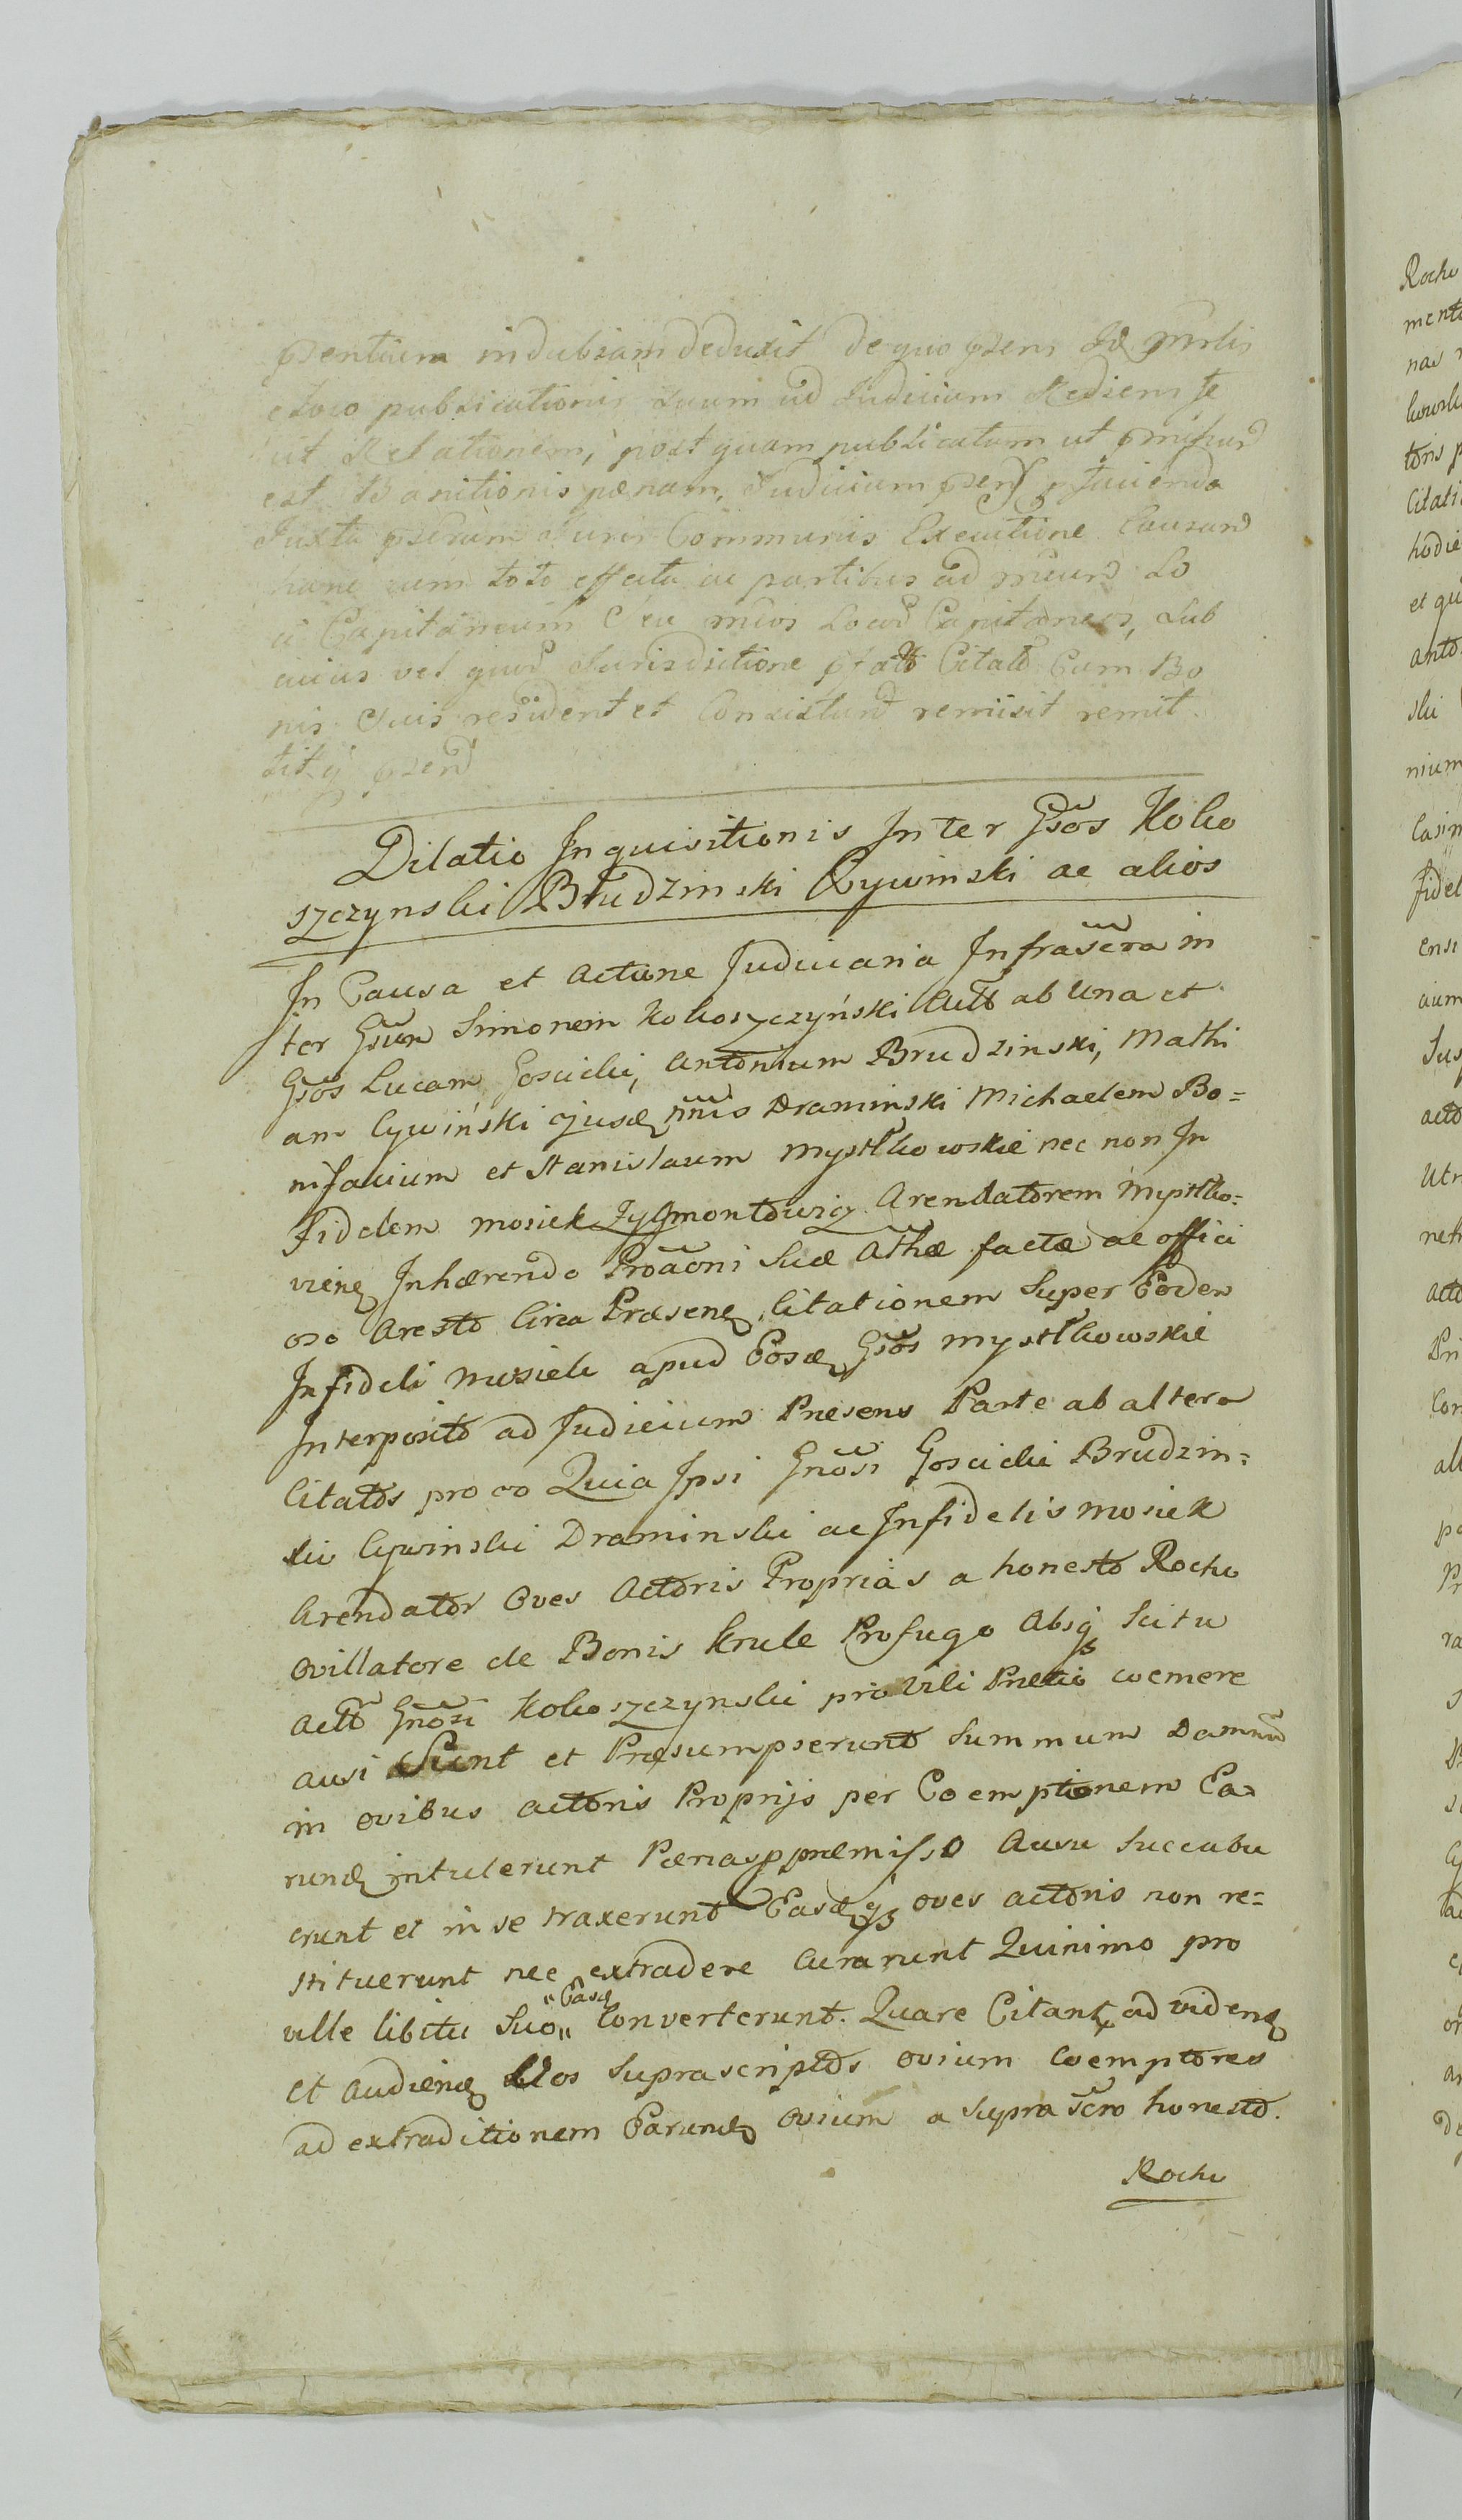 psentium indubiam deduxit de quo psens
e Loco publicationis suum ad Judicium Rediens fe
cit Relationem, post quam publicatam ut
est Banitionis pænam, Judicium psens
Juxta pscrum Juris Communis Executione Causam
hanc cum toto effectu ac partibus ad Lo
ci Capitaneum Seu Capitaneos, Sub
cuius vel Jurisdictione Citat Cum Bo
nis Suis resident et Consistunt remisit remit
tit
Dilatio Inquisitionis Inter Gsõs Koko
szczynski Brudzinski Cywinski ac alios
In Causa et Actione Judiciaria Infrascra in
ter Gsum Simonem Kokoszczyński Actt ab Una et
Gsõs Lucam Goscicki, Antonium Brudzinski, Mathi
am Cywiński Draminski Michaelem Bo=
nifacium et Stanislaum Mystkowskie nec non In
fidelem Mosiek Zygmontowicz Arendatorem Mystko=
Inhærendo Proãoni Suæ Athæ factæ ac offici
oso Aresto Circa Præsenq Citationem Super Eodem
Infideli Mosiek apud Eosdq Gsõs Mystkowskie
Interposito ad Judicium Præsens Parte ab altera
Citatos pro eo Quia Ipsi Gnõsi Goscicki Brudzin=
ski Cywinski Draminski ac Infidelis Mosiek
Arendator Oves Actoris Proprias a honesto Rocho
Ovillatore de Bonis Krule Profugo Absq Scitu
Actt Gnõsi Kokoszczynski pro Vili Pretio coemere
ausi Sunt et Præsumpserunt Summum Damnũ
in ovibus actoris Proprijs per Coemptionem Ea=
rundq intulerunt Pænas p præmisso Ausu Succubu
erunt et in se traxerunt Easdq oves actoris non re=
stituerunt nec extradere Curarunt Quinimo pro
velle libitu Suo "Easdq" Converterunt. Quare Citant ad vidend
et audiend Vos Suprascriptos ovium Coemptores
ad extraditionem Earundq Ovium a Suprascro honesto
Rocho